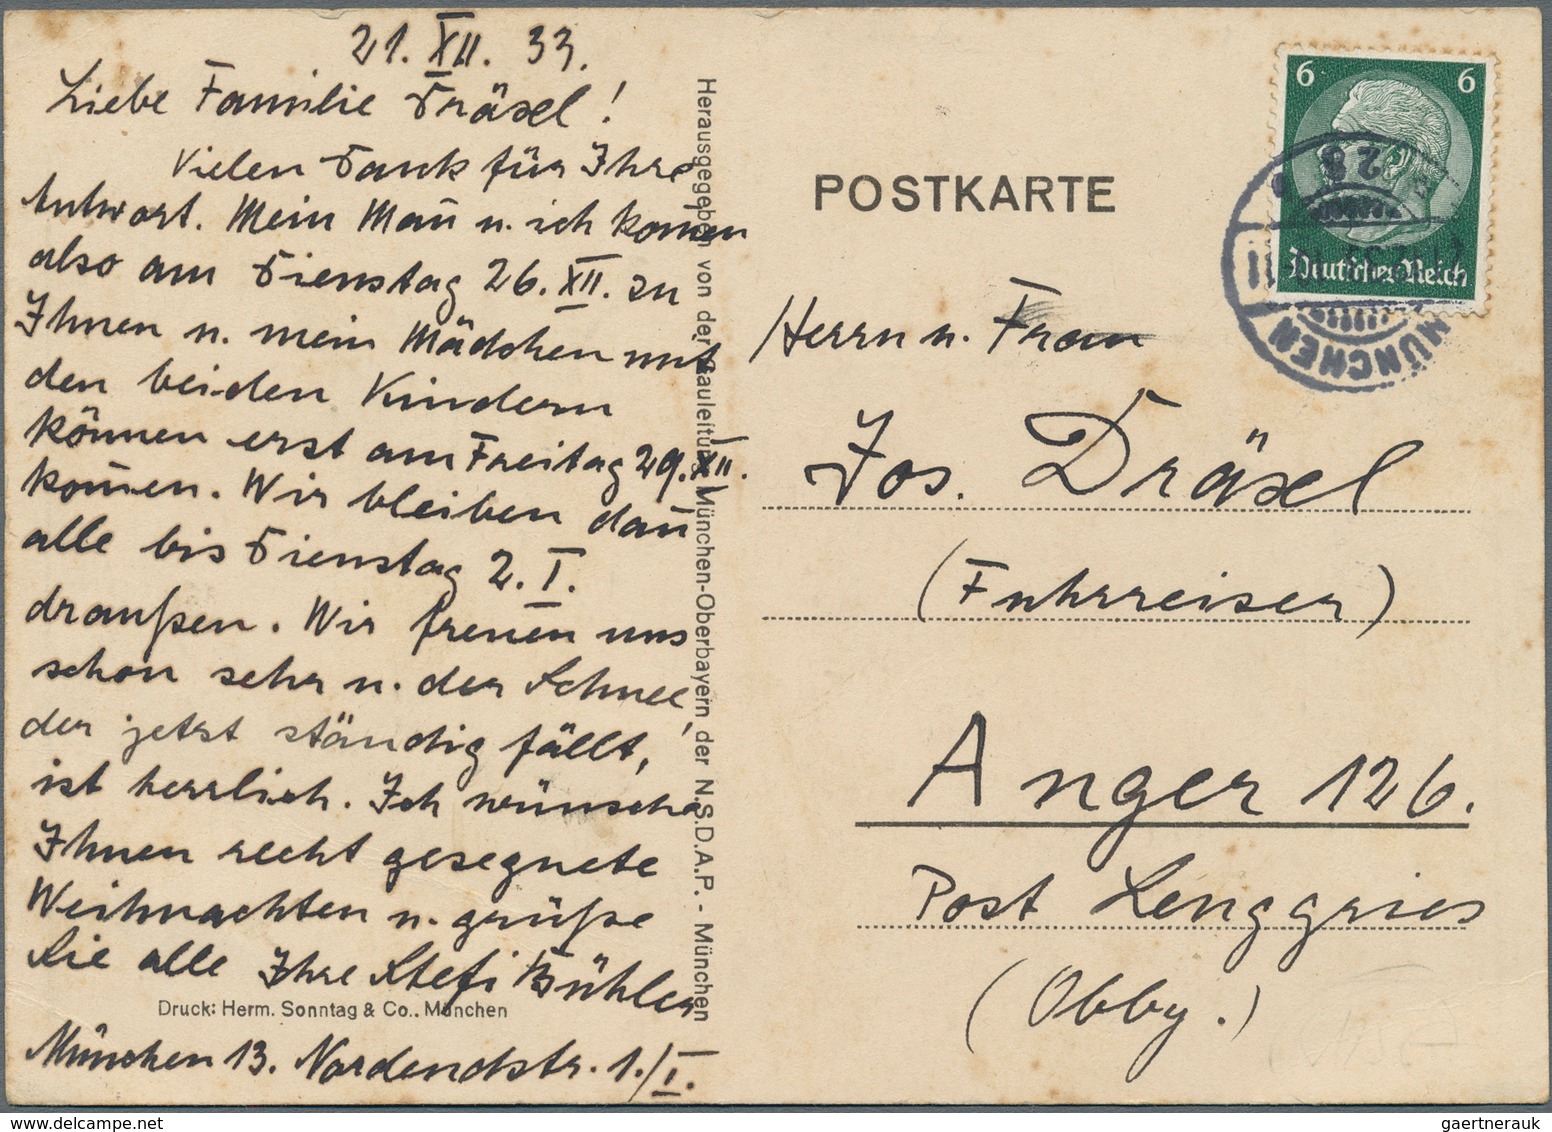 21. XII. 33.
Liebe Familie Dräxl!
Vielen Dank für Ihre
Antwort. Mein Mañ u. ich kom̄en
also am Dienstag 26. XII. zu
Ihnen u. mein Mädchen mit
den beiden Kindern
können erst am Freitag 29. XII.
kom̄en. Wir bleiben dañ
alle bis Dienstag 2. I.
draußen. Wir freuen uns
schon sehr u. der Schnee,
der jetzt ständig fällt,
ist herrlich. Ich wünsche
Ihnen recht gesegnete
Weihnachten u. grüße
Sie alle Ihre Stefi Bühler
Druck: Herm. Sonntag & Co., München
München 13. Nordendstr. 1./I.
Herausgegeben von der Gauleitung München-Oberbayern der N.S.D.A.P. - München
POSTKARTE
6 6
Deutsches Reich
MÜNCHEN
Herrn u. Frau
Jos. Dräxl
(Fuhrreiser)
Anger 126.
Post Lenggries
(Obby.)
gaertnerauk @